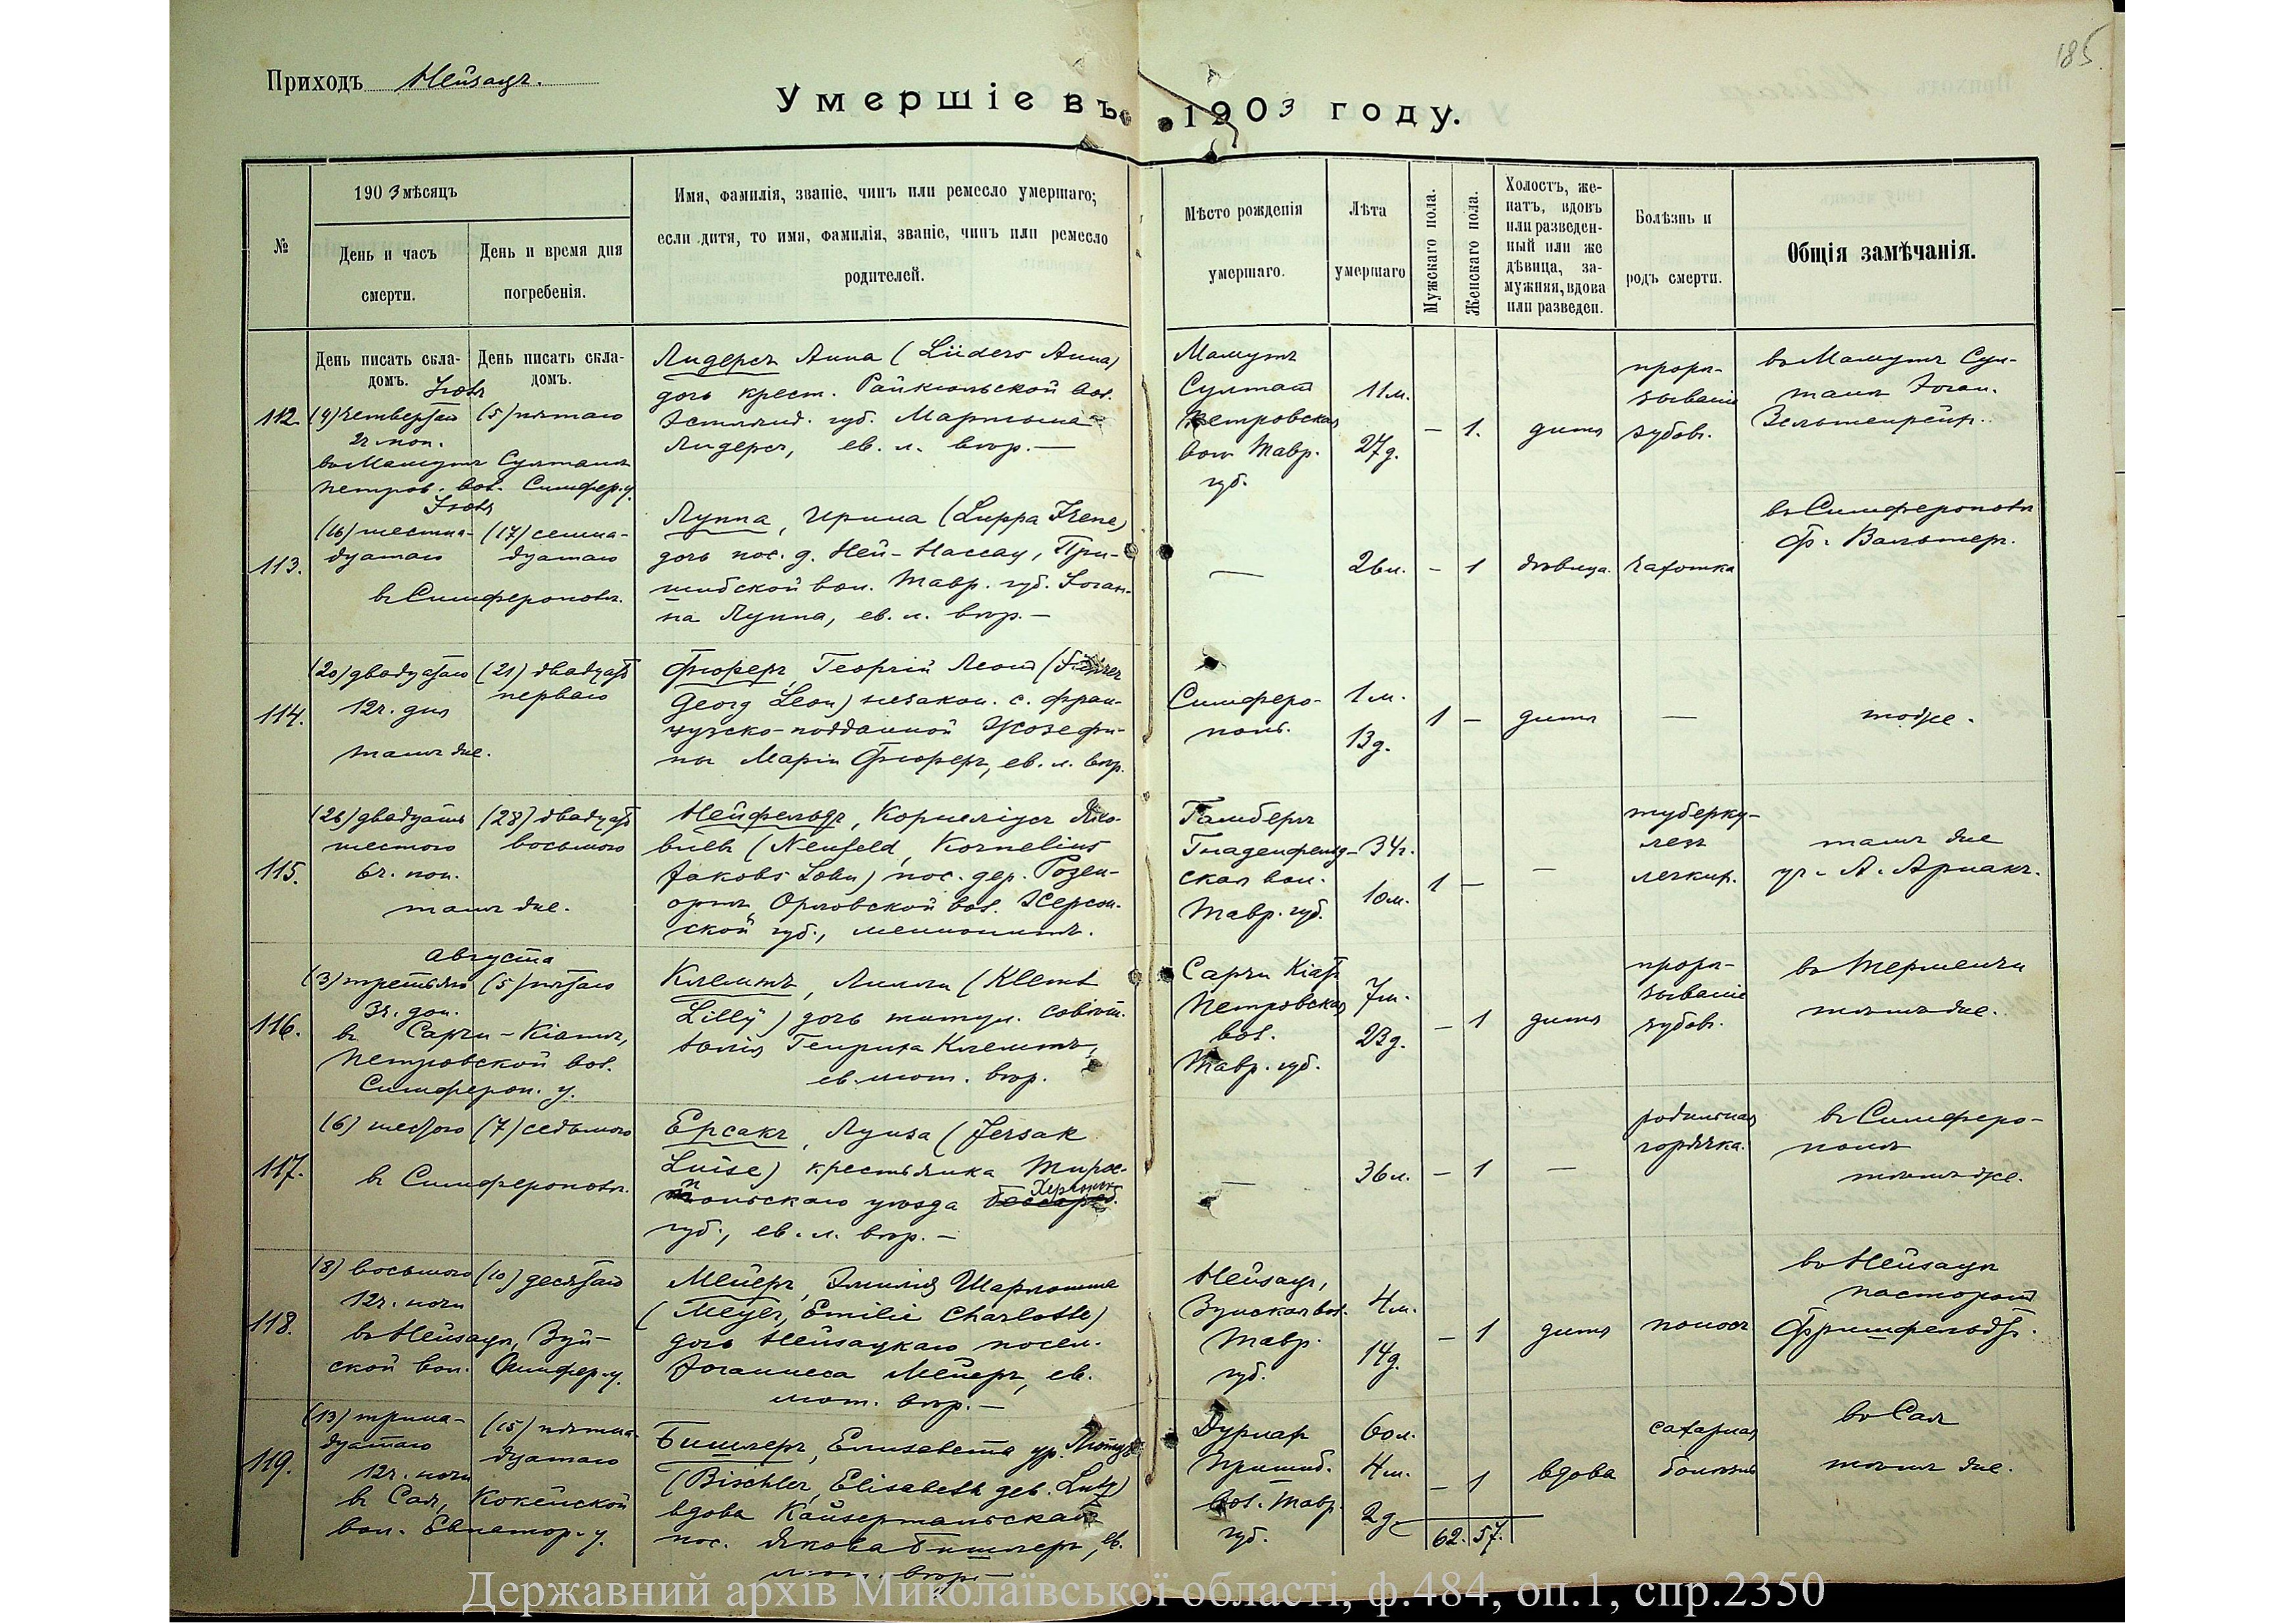 185
Приходъ Нейзацъ.
Умершіе въ 1903 году.
№
1903 мѣсяцъ
День и часъ
смерти.
День и время дня
погребенія.
Имя, фамилія, званіе, чинъ или ремесло умершаго;
если дитя, то имя, фамилія, званіе, чинъ или ремесло
родителей.
Мѣсто рожденія
умершаго.
Лѣта
умершаго
Мужскаго пола.
Женскаго пола.
Холостъ, же-
натъ, вдовъ
или разведен-
ный или же
дѣвица, за-
мужняя, вдова
или разведен.
Болѣзнь и
родъ смерти.
Общія замѣчанія.
День писать скла-
домъ.
День писать скла-
домъ.
112.
(4) четвертаго
2ч. поп.
въ Мамутъ Султанъ
Петров. вол. Симфер. у.
(5) пятаго
Лидерсъ Анна (Lüders Anna)
дочь крест. Райкюльской вол.
Эстлянд. губ. Мартына
Лидерсъ, ев. л. вѣр. —
Мамутъ
Султанъ
Петровская
вол. Тавр.
губ.
11м.
27д.
— 1.
дитя
проръ-
зываніе
зубовъ.
въ Мамутъ Сул-
танъ Іоган.
113.
(16) шестна-
дцатаго
въ Симферополѣ.
(17) семна-
дцатаго
Луппа, Ирина (Luppa Irene)
дочь пос. д. Ней-Нассау, При-
шибской вол. Тавр. губ. Іоган-
на Луппа, ев. л. вѣр. —
—
26л.
— 1
дѣвица.
чахотка
въ Симферополѣ
Ф. Вальтеръ.
114.
(20) двадцатаго
12ч. дня
тамъ же.
(21) двадцать
перваго
Фюреръ, Георгій Леонъ (
Georg Leon) незакон. с. фран-
цузско-подданной Жозефи-
ны Маріи Фюреръ, ев. л. вѣр.
Симферо-
поль.
1м.
13д.
1 —
дитя
—
тоже.
115.
(26) двадцать
шестого
6ч. поп.
тамъ же.
(28) двадцать
восьмого
Нейфельдъ, Корнеліусъ Яко-
влевъ (Neufeld, Kornelius
Jakobs Sohn) пос. дер. Розен-
ортъ Орловской вол. Херсон-
ской губ., меннонитъ.
Гамбергъ
Гнаденфельд-
ская вол.
Тавр. губ.
34г.
10м.
1 —
—
туберку-
лезъ
легкихъ.
тамъ же
116.
Августа
(3) третьяго
3ч. поп.
въ Сарчи-Кіятъ,
Петровской вол.
Симфероп. у.
(5) пятаго
Клемтъ, Лилли (Klemt
Lilly) дочь титул. совѣтн.
Генриха Клемтъ,
ев. лют. вѣр.
Сарчи Кіятъ
Петровская
вол.
Тавр. губ.
7м.
23д.
— 1
дитя
проръ-
зываніе
зубовъ.
тотъ же.
117.
(6) шестого
въ Симферополѣ.
(7) седьмого
Ерсакъ, Луиза (Jersak
Luise) крестьянка Тирас-
польскаго уѣзда Херсонск.
губ., ев. л. вѣр. —
—
36л.
— 1
—
родильная
горячка.
въ Симферо-
полѣ
тотъ же.
118.
(8) восьмого
12ч. ночи
въ Нейзацъ, Зуй-
ской вол. Симфер. у.
(10) десятаго
Мейеръ, Эмилія Шарлотте
(Meyer, Emilie Charlotte)
дочь Нейзацкаго посел.
Іоганнеса Мейеръ, ев.
лют. вѣр. —
Нейзацъ,
Зуйская вол.
Тавр.
губ.
4м.
14д.
— 1
дитя
поносъ
въ Нейзацъ
пасторомъ
119.
(13) трина-
дцатаго
12ч. ночи
въ Сая, Кокейской
вол. Евпатор. у.
(15) пятна-
дцатаго
Бишлеръ, Елизавета ур. Лютцъ
(Bischler, Elisabeth geb. Lutz)
вдова Кайзертальскаго
пос. Якова Бишлеръ, ев.
лют. вѣр. —
Дурлар
Пришиб.
вол. Тавр.
губ.
60л.
4м.
2д.
— 1
вдова
сахарная
болѣзнь
въ Сая
тотъ же.
62. 57.
Державний архів Миколаївської області, ф.484, оп.1, спр.2350